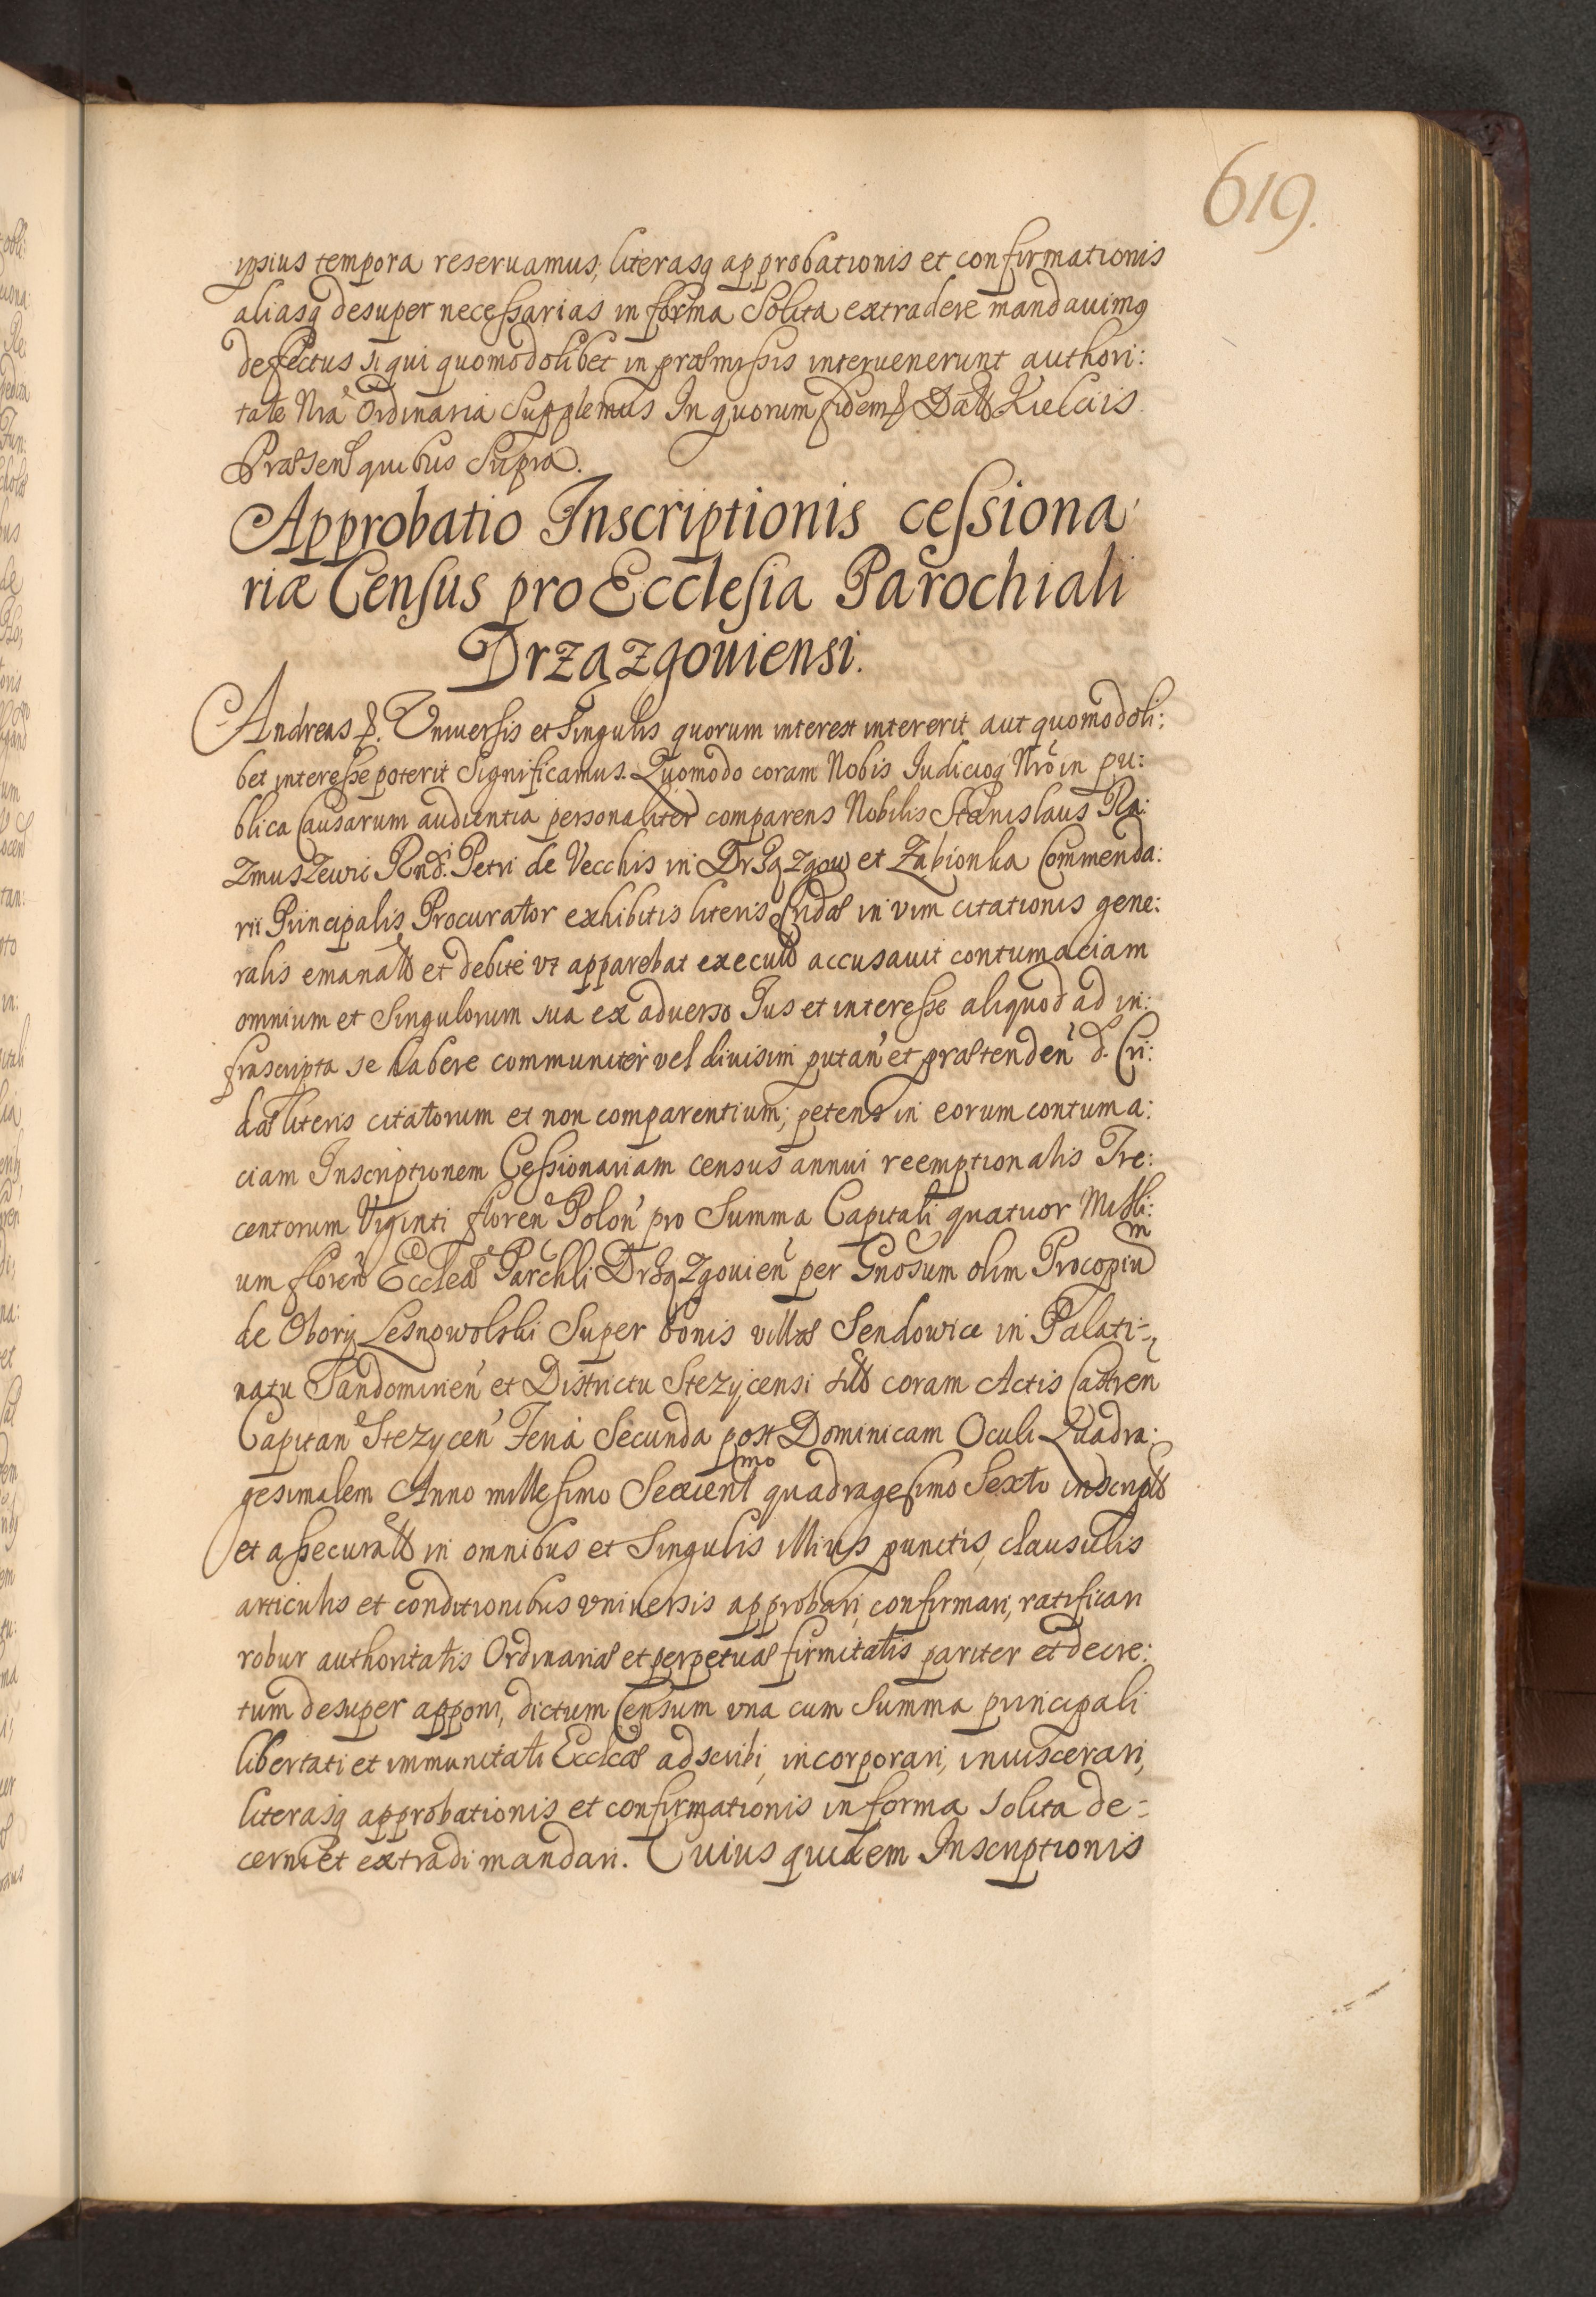 619.
ipsius tempora reseruamus, literasq approbationis et confirmationis
aliasq desuper necessarias in forma solita extradere mandauimq
defectus si qui quomodolibet in præmissis interuenerunt authori:
tate Nrã Ordinaria Supplemus In quorum fidem &. Datt Kielciis
Præsent quibus supra.
Approbatio Inscriptionis cessiona
riæ Census pro Ecclesia Parochiali
Drzązgouiensi.
Andreas &. Vniuersis et Singulis quorum interest intererit aut quomodoli:
bet interesse poterit Significamus. Quomodo coram Nobis Iudicioq Nrõ in pu:
blica Causarum audientia personaliter comparens Nobilis Stanislaus Ra:
zmuszewic Rnd. Petri de Vecchis in Drządzgow et Zabionka Commenda:
rii Principalis Procurator exhibitis literis Cridæ in vim citationis gene:
ralis emanatt et debite vt apparebat executt accusauit contumaciam
omnium et Singulorum sua ex aduerso Ius et interesse aliquod ad in:
frascripta se habere communiter vel diuisim putan et prætenden d. Cri:
dæ literis citatorum et non comparentium; petens in eorum contuma:
ciam Inscriptionem Cessionariam census annui reemptionalis Tre:
centorum Viginti floren Polon pro Summa Capitali quatuor Milli:
um floren Eccleæ Parchli Drzązgouien per Gnosum olim Procopiũ
de Obory Lesnowolski Super bonis villæ Sendowice in Palati-
natu Sandomirien et Districtu Stezycensi sitt coram Actis Castren
Capitan Stezycen Feria Secunda post Dominicam Oculi Quadra:
gesimalem Anno millesimo Sexcent^mo quadragesimo Sexto inscriptt
et assecuratt in omnibus et Singulis illius punctis, clausulis
articulis et conditionibus vniuersis approbari, confirmari, ratificari
robur authoritatis Ordinariæ et perpetuæ firmitatis pariter et decre:
tum desuper apponi, dictum Censum vna cum Summa principali
libertati et immunitati Eccleæ adscribi, incorporari, inuiscerari,
literasq approbationis et confirmationis in forma solita de-
cerni et extradi mandari. Cuius quidem Inscriptionis